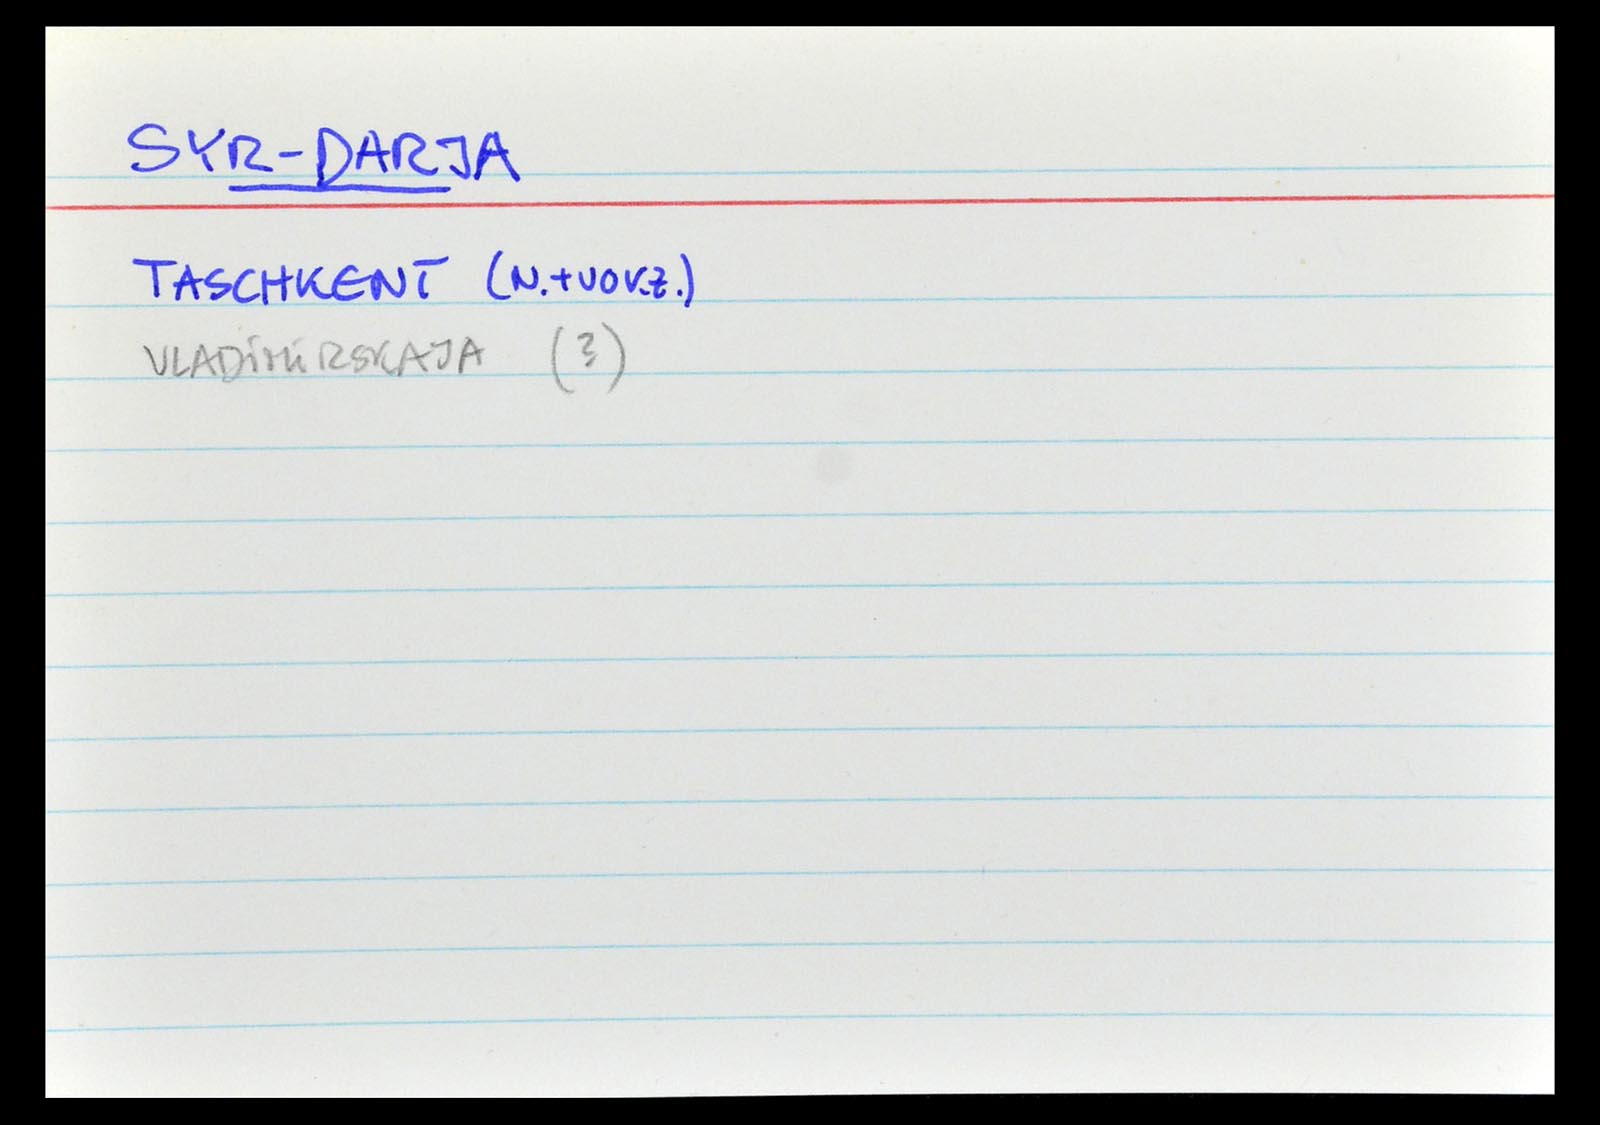 SYR-DARJA
TASCHKENT (N.+VOKZ.)
VLADIMIRSKAJA (?)